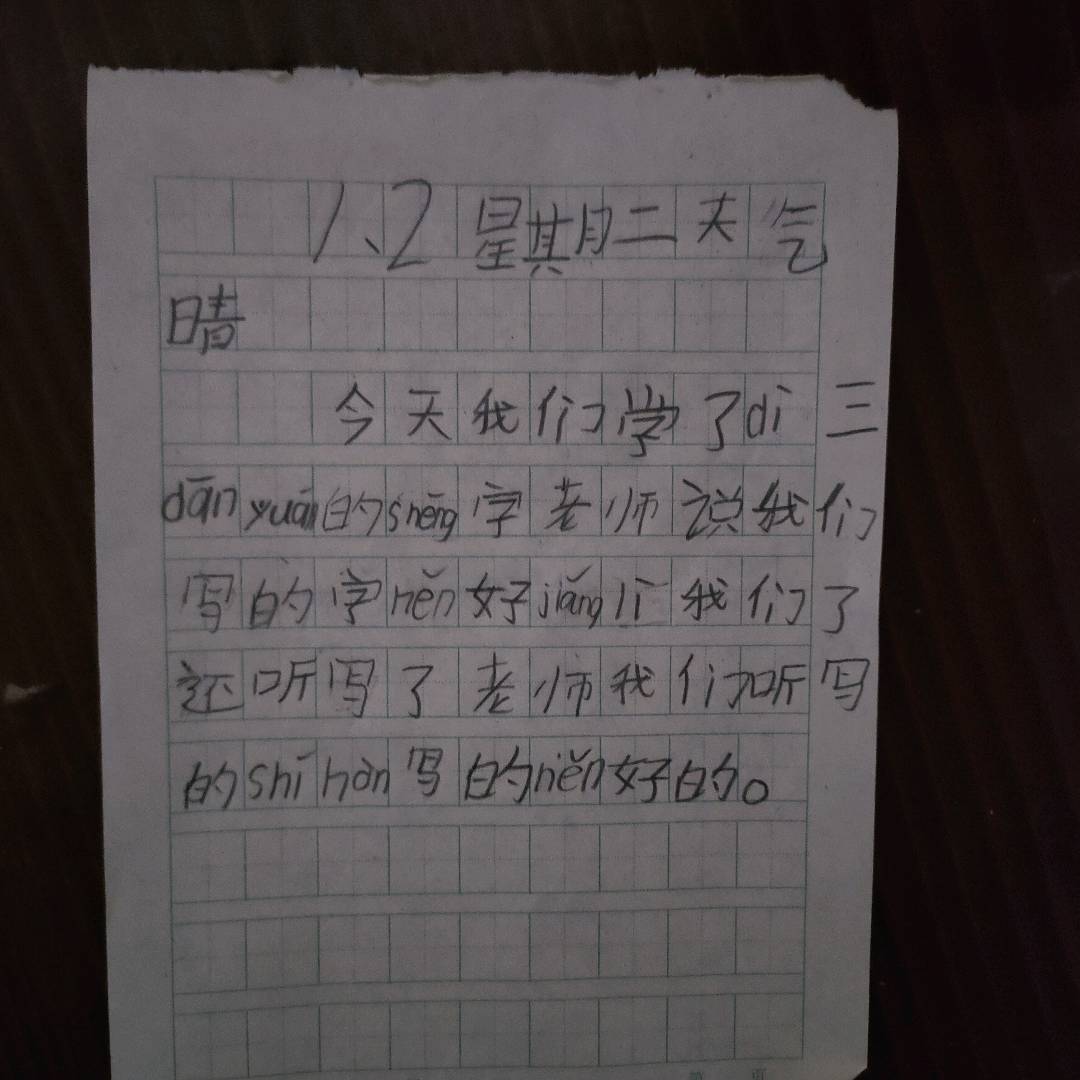 1、2 星期二天气
晴
今天我们学了dì三
dān yuán的shēng字老师说我们
写的字hěn好jiǎng lì我们了
还听写了老师我们听写
的shí hòu写的hěn好的。
第 页